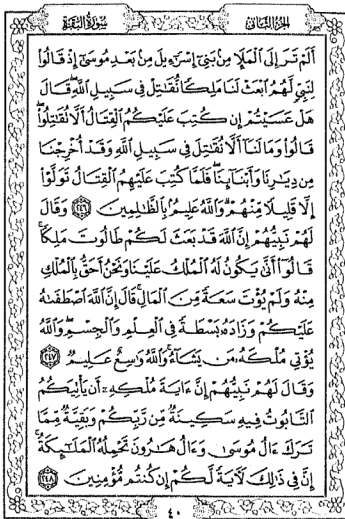 الجزء الثاني
سورة البقرة
أَلَمْ تَرَ إِلَى ٱلْمَلَإِ مِنۢ بَنِىٓ إِسْرَٰٓءِيلَ مِنۢ بَعْدِ مُوسَىٰٓ إِذْ قَالُوا۟
لِنَبِىٍّ لَّهُمُ ٱبْعَثْ لَنَا مَلِكًا نُّقَٰتِلْ فِى سَبِيلِ ٱللَّهِ ۖ قَالَ
هَلْ عَسَيْتُمْ إِن كُتِبَ عَلَيْكُمُ ٱلْقِتَالُ أَلَّا تُقَٰتِلُوا۟ ۖ
قَالُوا۟ وَمَا لَنَآ أَلَّا نُقَٰتِلَ فِى سَبِيلِ ٱللَّهِ وَقَدْ أُخْرِجْنَا
مِن دِيَٰرِنَا وَأَبْنَآئِنَا ۖ فَلَمَّا كُتِبَ عَلَيْهِمُ ٱلْقِتَالُ تَوَلَّوْا۟
إِلَّا قَلِيلًا مِّنْهُمْ ۗ وَٱللَّهُ عَلِيمٌۢ بِٱلظَّٰلِمِينَ ﴿٢٤٦﴾ وَقَالَ
لَهُمْ نَبِيُّهُمْ إِنَّ ٱللَّهَ قَدْ بَعَثَ لَكُمْ طَالُوتَ مَلِكًا ۚ
قَالُوٓا۟ أَنَّىٰ يَكُونُ لَهُ ٱلْمُلْكُ عَلَيْنَا وَنَحْنُ أَحَقُّ بِٱلْمُلْكِ
مِنْهُ وَلَمْ يُؤْتَ سَعَةً مِّنَ ٱلْمَالِ ۚ قَالَ إِنَّ ٱللَّهَ ٱصْطَفَىٰهُ
عَلَيْكُمْ وَزَادَهُۥ بَسْطَةً فِى ٱلْعِلْمِ وَٱلْجِسْمِ ۖ وَٱللَّهُ
يُؤْتِى مُلْكَهُۥ مَن يَشَآءُ ۚ وَٱللَّهُ وَٰسِعٌ عَلِيمٌ ﴿٢٤٧﴾
وَقَالَ لَهُمْ نَبِيُّهُمْ إِنَّ ءَايَةَ مُلْكِهِۦٓ أَن يَأْتِيَكُمُ
ٱلتَّابُوتُ فِيهِ سَكِينَةٌ مِّن رَّبِّكُمْ وَبَقِيَّةٌ مِّمَّا
تَرَكَ ءَالُ مُوسَىٰ وَءَالُ هَٰرُونَ تَحْمِلُهُ ٱلْمَلَٰٓئِكَةُ ۚ
إِنَّ فِى ذَٰلِكَ لَءَايَةً لَّكُمْ إِن كُنتُم مُّؤْمِنِينَ ﴿٢٤٨﴾
٤٠